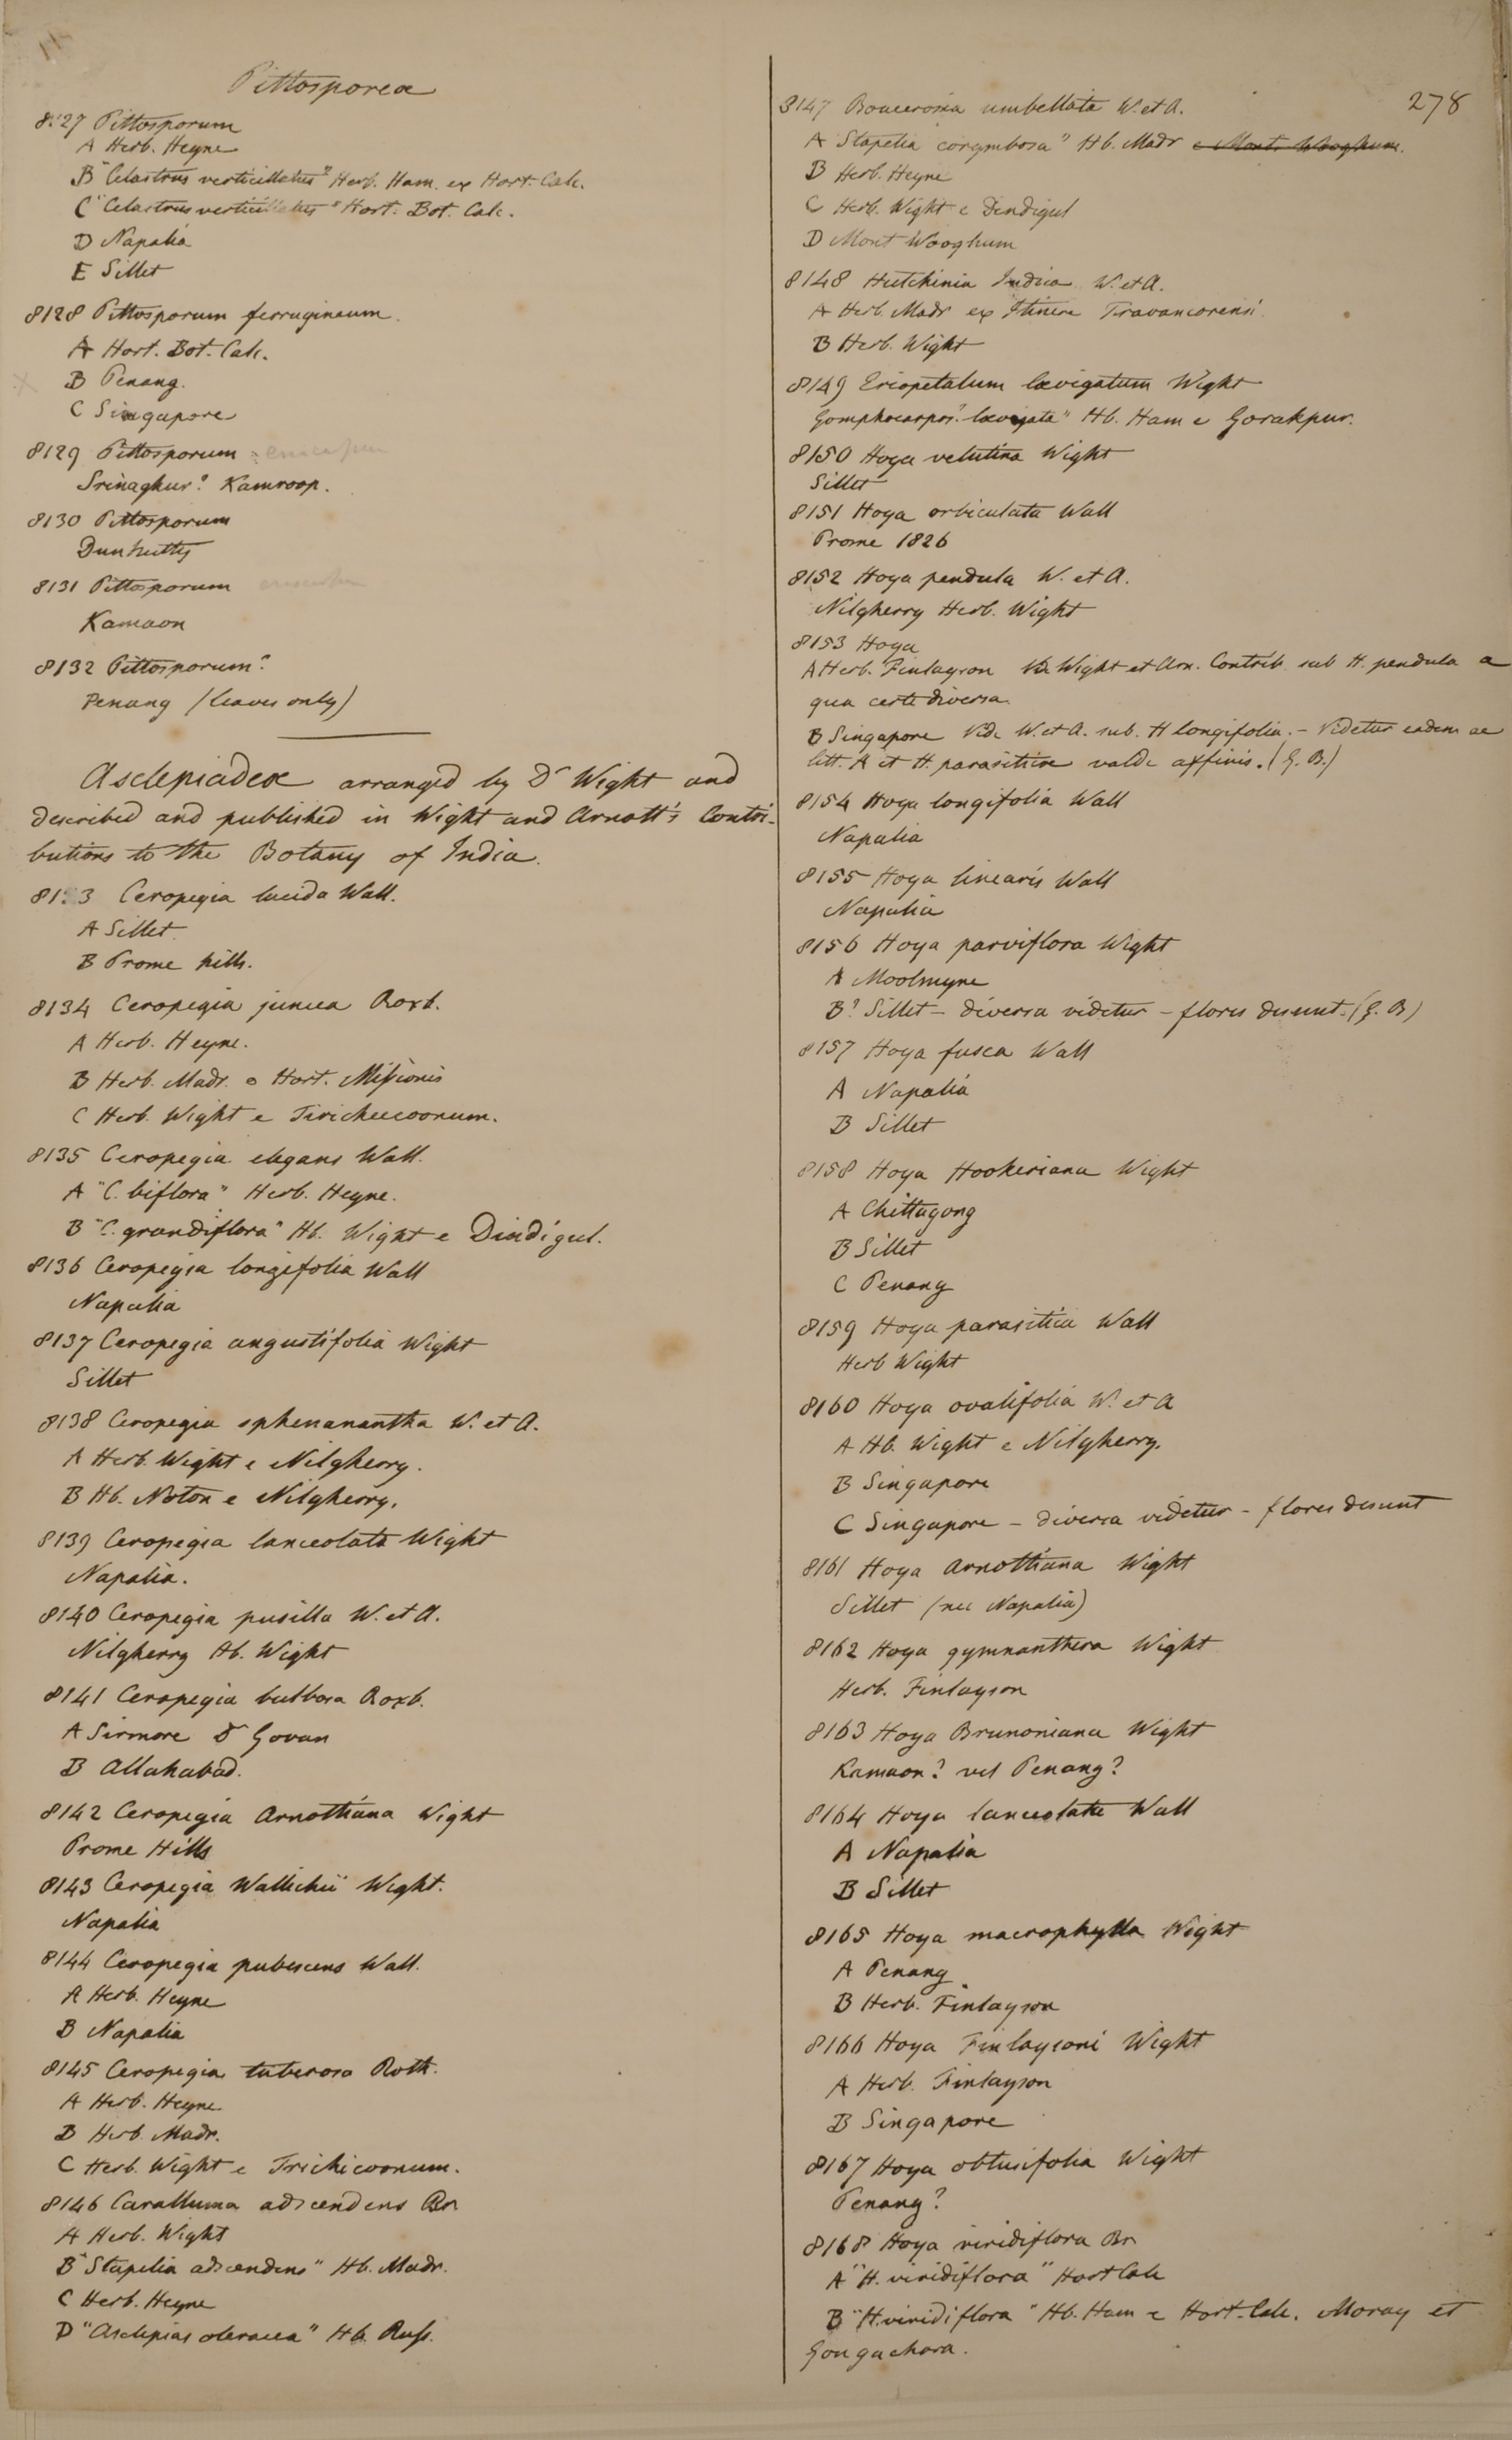 Pittosporeæ
8127 Pittosporum
A Herb. Heyne
B "Celastrus verticillatus" Herb. Ham. ex Hort. Calc.
C "Celastrus verticillatus" Hort. Bot. Calc.
D Napalia
E Sillet
8128 Pittosporum ferrugineum.
A Hort. Bot. Calc.
B Penang.
C Singapore
8129 Pittosporum
Srinaghur? Kamroop.
8130 Pittosporum
8131 Pittosporum
Kamaon
8132 Pittosporum?
Penang (leaves only)
Asclepiadeæ arranged by Dr Wight and
described and published in Wight and Arnott's Contri-
butions to the Botany of India.
8133 Ceropegia lucida Wall.
A Sillet
B Prome hills.
8134 Ceropegia juncea Roxb.
A Herb. Heyne.
B Herb. Madr. e Hort. Missionis
C Herb. Wight e
8135 Ceropegia elegans Wall.
A "C. biflora" Herb. Heyne.
B "C. grandiflora" Hb. Wight e Dindigul.
8136 Ceropegia longifolia Wall
Napalia
8137 Ceropegia angustifolia Wight
Sillet
8138 Ceropegia sphenanantha W. et A.
A Herb. Wight e Nilgherry.
B Hb. Noton e Nilgherry.
8139 Ceropegia lanceolata Wight
Napalia.
8140 Ceropegia pusilla W. et A.
Nilgherry Hb. Wight
8141 Ceropegia bulbosa Roxb.
A Sirmore Dr Govan
B Allahabad.
8142 Ceropegia Arnottiana Wight
Prome Hills
8143 Ceropegia Wallichii Wight.
Napalia
8144 Ceropegia pubescens Wall.
A Herb. Heyne
B Napalia
8145 Ceropegia tuberosa Roth.
A Herb. Heyne
B Herb. Madr.
C Herb. Wight e
8146 Caralluma adscendens Br
A Herb. Wight
B "Stapelia adscendens" Hb. Madr.
C Herb. Heyne
D "Asclepias oleracea" Hb. Russ.
278
8147 Boucerosia umbellata W. et A.
A "Stapelia corymbosa" Hb. Madr e Monte Wooghum.
B Herb. Heyne
C Herb. Wight e Dindigul
D Mont Wooghum
8148 Hutchinia Indica W. et A.
A Herb. Madr ex Itinere Travancorensi.
B Herb. Wight
8149 Eriopetalum lævigatum Wight
Gomphocarpos? lævigata" Hb. Ham e Gorakpur.
8150 Hoya velutina Wight
Sillet
8151 Hoya orbiculata Wall
Prome 1826
8152 Hoya pendula W. et A.
Nilgherry Herb. Wight
8153 Hoya
A Herb. Finlayson Vide Wight et Arn. Contrib. sub H. pendula a
qua certe diversa.
B Singapore Vide W. et A. sub. H longifolia. - Videtur eadem ac
litt. A et H. parasiticæ valde affinis. (G. B.)
8154 Hoya longifolia Wall
Napalia
8155 Hoya linearis Wall
Napalia
8156 Hoya parviflora Wight
A Moolmyne
B? Sillet - diversa videtur - flores desunt. (G. B)
8157 Hoya fusca Wall
A Napalia
B Sillet
8158 Hoya Hookeriana Wight
A Chittagong
B Sillet
C Penang
8159 Hoya parasitica Wall
Herb Wight
8160 Hoya ovalifolia W. et A
A Hb. Wight e Nilgherry.
B Singapore
C Singapore - diversa videtur - flores desunt
8161 Hoya Arnottiana Wight
Sillet (nec Napalia)
8162 Hoya gymnanthera Wight
Herb. Finlayson
8163 Hoya Brunoniana Wight
Kamaon? vel Penang?
8164 Hoya lanceolata Wall
A Napalia
B Sillet
8165 Hoya macrophylla Wight
A Penang
B Herb. Finlayson
8166 Hoya Finlaysoni Wight
A Herb. Finlayson
B Singapore
8167 Hoya obtusifolia Wight
Penang?
8168 Hoya viridiflora Br
A "H. viridiflora" Hort Calc
B "H. viridiflora" Hb. Ham e Hort. Calc. Moray et
Gongachora.